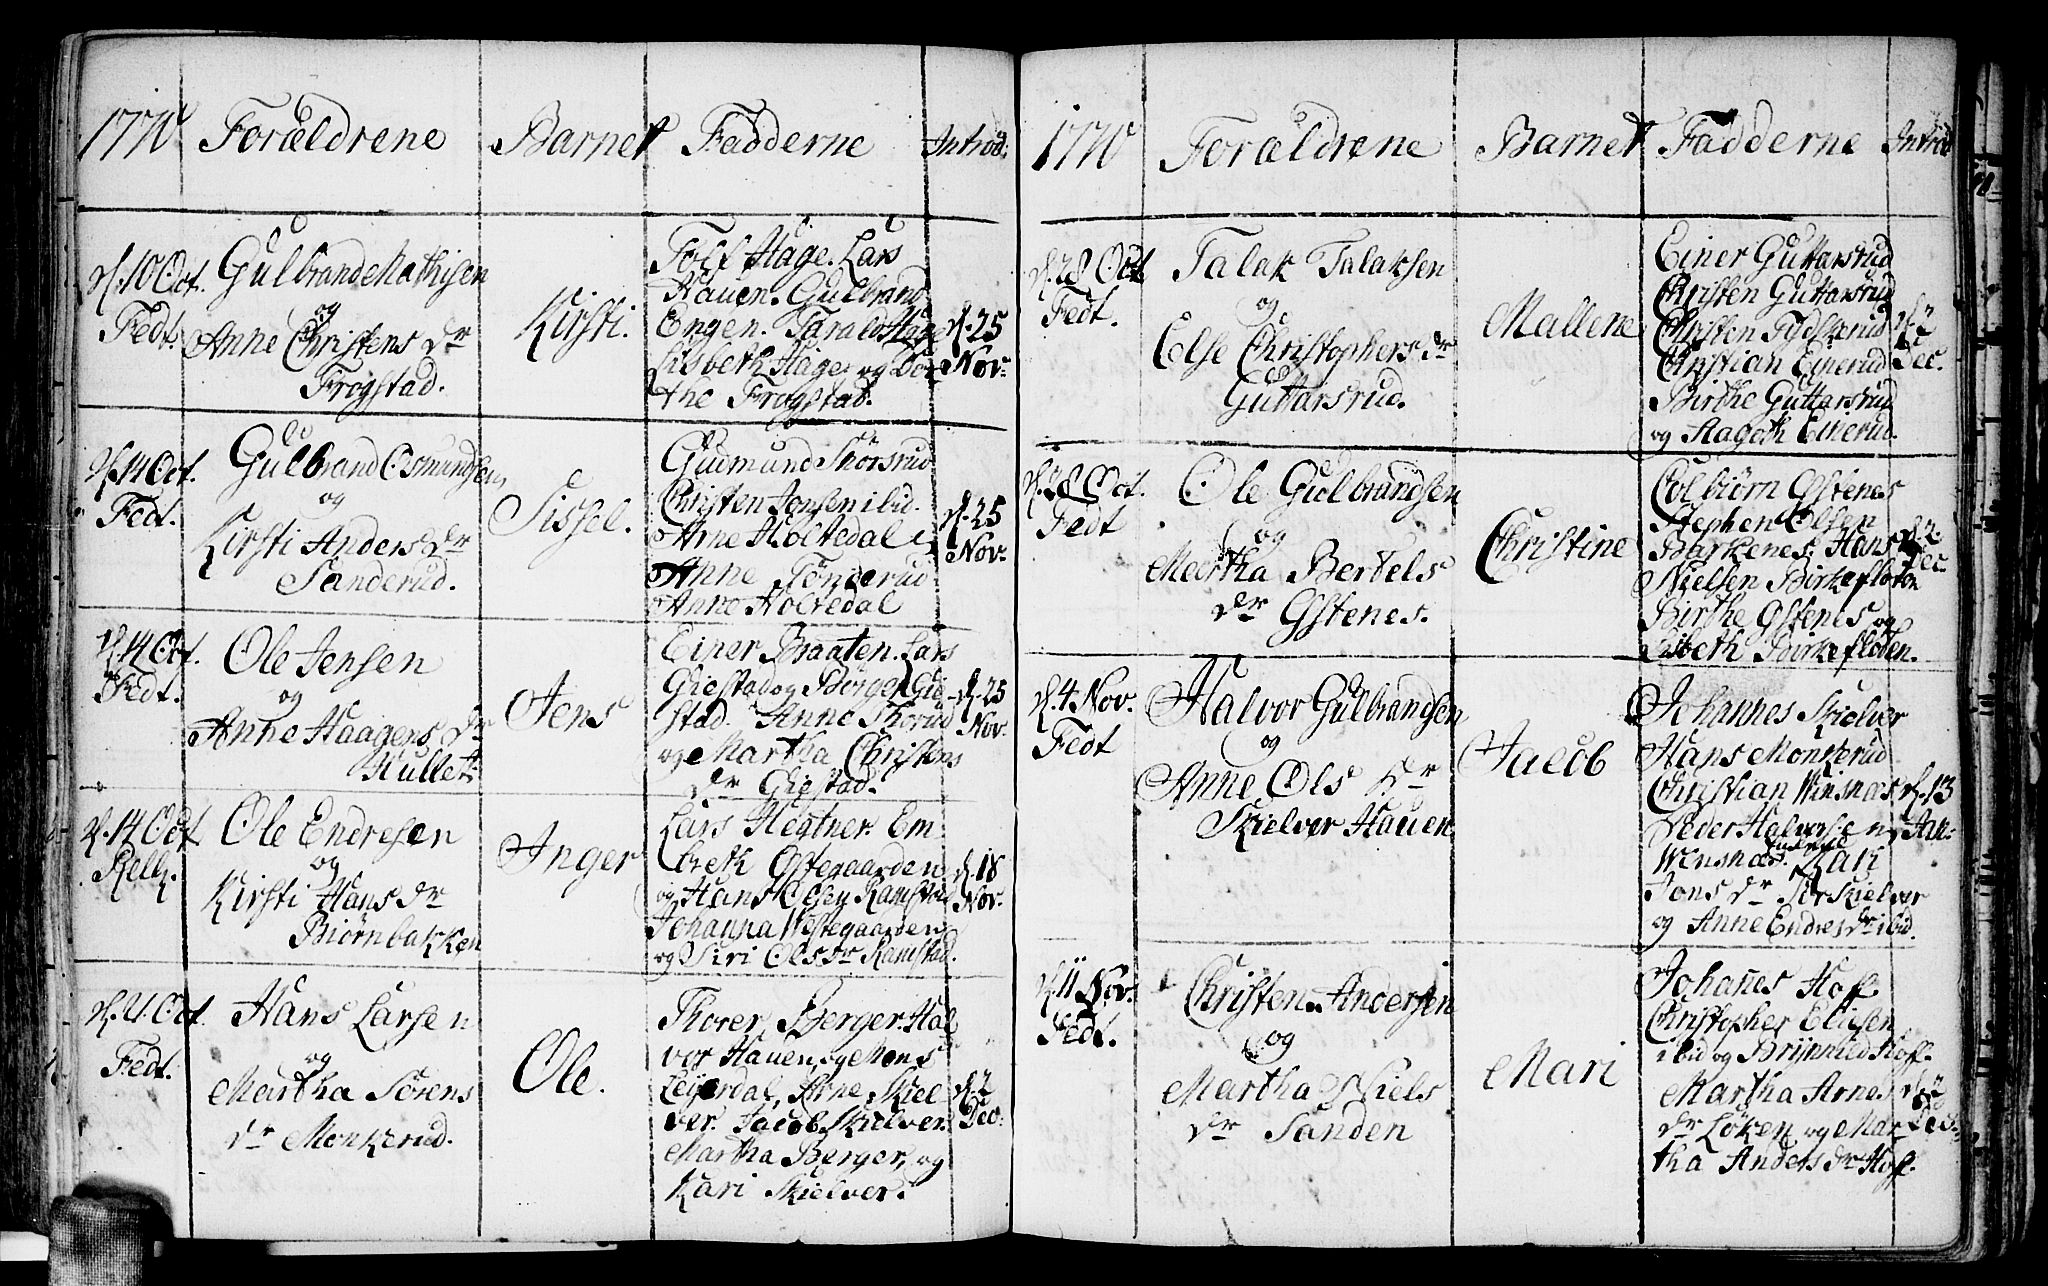 1770 Forældrene Barnet Fadderne Introd:
d. 10 Oct. Fedt.
Gulbrand Mathisen
og
Anne Christens dr
Frogstad.
Kirsti.
Tolf Hage. Lars
Hauen. Gulbrand
Engen. Tarald Hage
Lisbeth Hage og Dor
the Frogstad.
d. 25
Nov:
d. 14 Oct.
Fedt.
Gulbrand Osmundsen
og
Kirsti Anders dr
Sanderud.
Sissel.
Gudmund Thorsrud
Christen Jonsen ibid.
Arne Holtedal
Anne Tønderud
Anne Holtedal
d. 25
Nov.
d. 14 Oct.
Fedt.
Ole Jensen
og
Anne Haagens dr
Hullet.
Jens
Einer Braaten. Lars
Giestad og Børger Gie
stad. Anne Thorud
og Martha Christens
dr Giestad.
d. 25
Nov.
d. 14 Oct
Ole Endresen
og
Kirsti Hans dr
Biørnbakken
Inger
Lars Hegtner. Em:
breth Ostegaarden
og Hans Olsen Ramstad
Johanna Westegaarden
og Siri Ols dr Ramstad.
d. 18
Nov.
d. 21 Oct.
Fedt.
Hans Larsen
og
Martha Sørens
dr Monkerud.
Ole.
Thorer Berger. Hal
vor Hauen, og Mons
Leyerdal, Arne Skiel
ver. Jacob Skielver.
Martha Berger, og
Kari Skielver.
d. 2
Dec:
1770 Forældrene Barnet Fadderne Introd
d. 28 Oct
Fedt.
Talak Talaksen
og
Else Christophers dr
Guttarsrud.
Mallene
Einer Guttarsrud
Christen Guttarsrud
Christen
Christian Einerud
Birthe Guttarsrud
og Rageth Einerud.
d. 2
Dec.
d. 28 Oct.
Fedt
Ole Gulbrandsen
og
Martha Bertels
dr Gstenes.
Christine
Colbiørn Gstenes
Stephen Olsen
Barkenes. Hans
Nielsen Birkefloten
Birthe Gstenes og
Lisbeth Birkefloden.
d. 2.
Dec.
d. 4 Nov.
Fedt
Halvor Gulbrandsen
og
Anne Ols dr
Skielver Hauen
Jacob
Johannes Skielver
Hans Monkerud
Christian Winsnæs
Peder Halvorsen
Winsnæs Kari
Jons dr Skielver
og Anne Endres dr ibid.
d. 13
Jan:
d. 11 Nov.
Fedt.
Christen Andersen
og
Martha Niels
dr Sanden
Mari
Johannes Hoff.
Christopher Eliasen
ibid og Brynnild Hoff.
Martha Arnes
dr Løken og Mar
tha Anders dr Hoff.
d. 2
Dec.